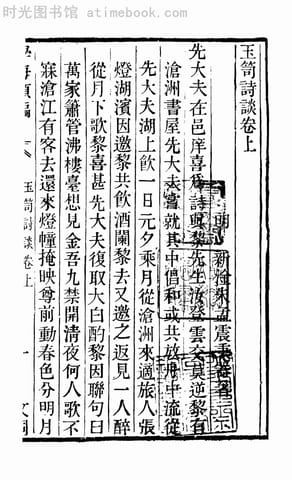 时光图书馆 - atimebook.com
玉笥詩談卷上
明 新淦朱孟震秉器著
先大夫在邑庠喜爲詩與黎先生汝登雲交莫逆黎有
滄洲書屋先大夫嘗就其中倡和或共放舟中流從
先大夫湖上飲一日元夕乘月從滄洲來適旅人張
燈湖濱因邀黎共飲酒闌黎去又邀之返見一人醉
從月下歌黎喜甚先大夫復取大白酌黎因聯句曰
萬家簫管沸樓臺想見金吾九禁開清夜何人歌不
寐滄江有客去還來燈幢掩映尊前動春色分明月
學海類編
玉笥詩談卷上
一